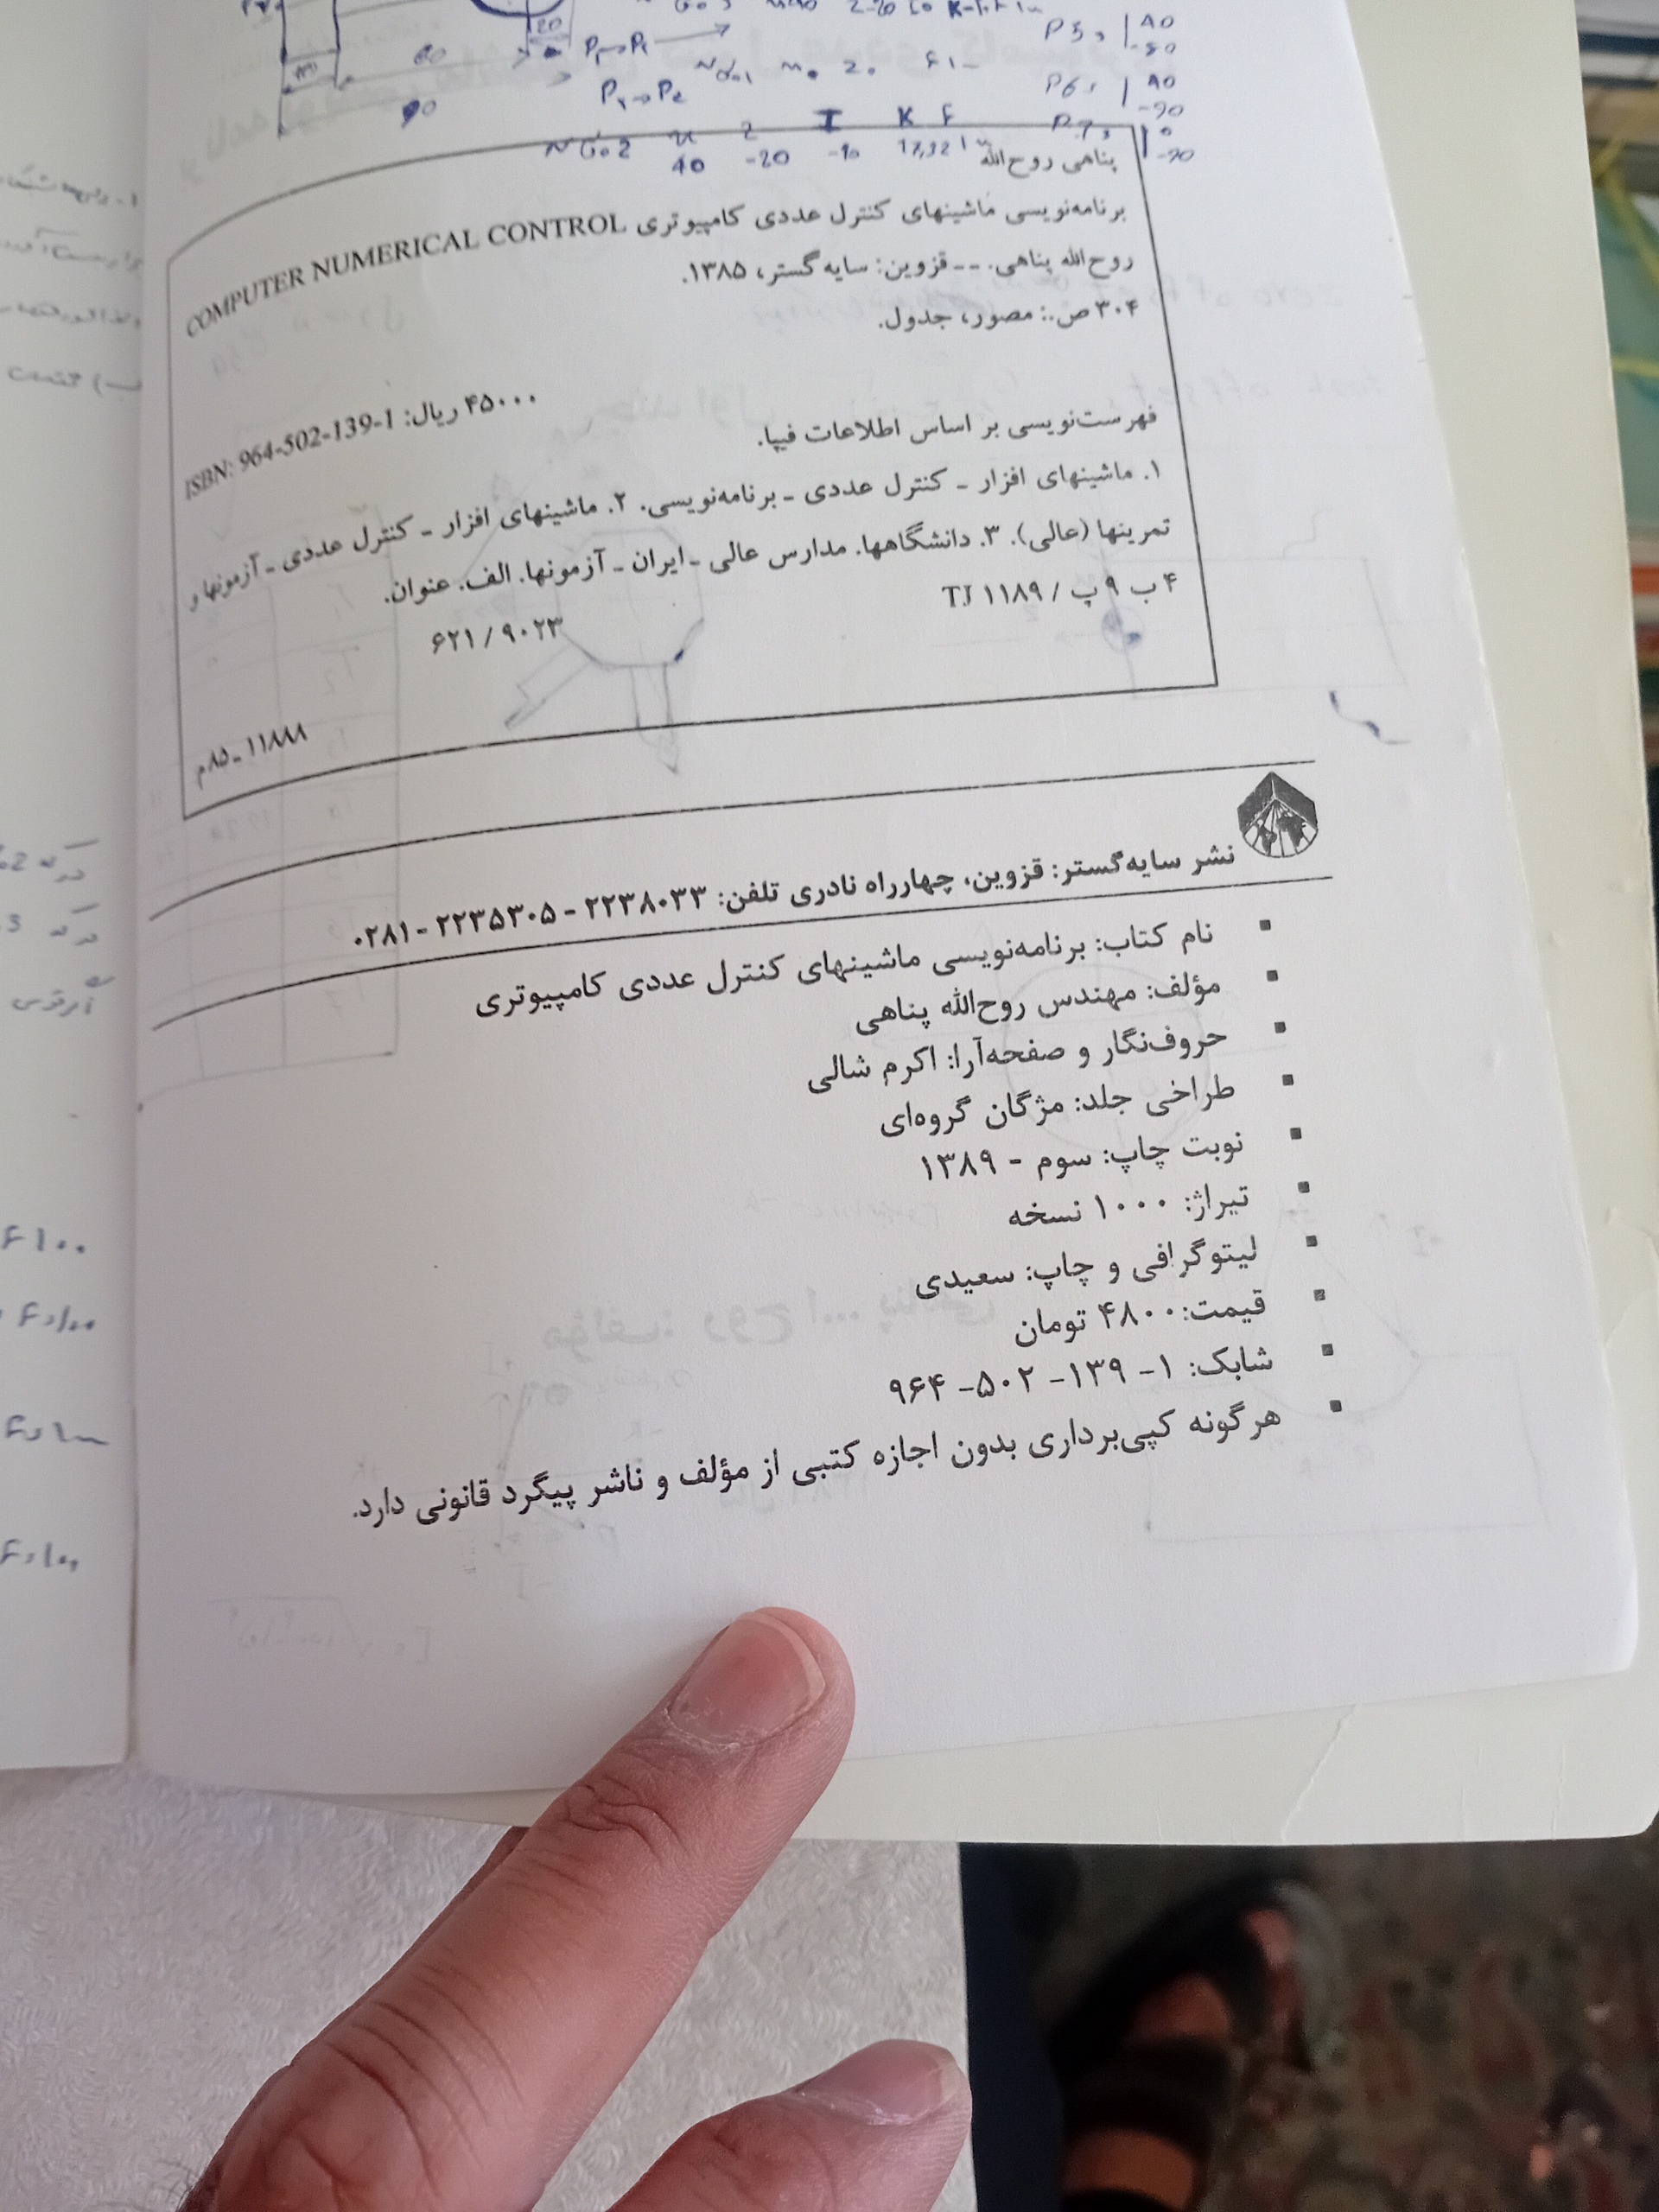 P5, | 40
-50
P1→P2
P6, | 40
-90
P2→P3
P7, | 0
-90
N G02 X Z I K F
40 -20 -10 17,32
پناهی روح‌الله
برنامه‌نویسی ماشینهای کنترل عددی کامپیوتری COMPUTER NUMERICAL CONTROL
روح‌الله پناهی. -- قزوین: سایه‌گستر، ۱۳۸۵.
۳۰۴ ص.: مصور، جدول.
ISBN: 964-502-139-1 :ریال ۴۵۰۰۰
فهرست‌نویسی بر اساس اطلاعات فیپا.
۱. ماشینهای افزار ـ کنترل عددی ـ برنامه‌نویسی. ۲. ماشینهای افزار ـ کنترل عددی ـ آزمونها و
تمرینها (عالی). ۳. دانشگاهها. مدارس عالی ـ ایران ـ آزمونها. الف. عنوان.
۴ ب ۹ پ / TJ ۱۱۸۹
۶۲۱ / ۹۰۲۳
۱۱۸۸۸ ـ ۸۵م
نشر سایه‌گستر: قزوین، چهارراه نادری تلفن: ۲۲۳۸۰۳۳ - ۲۲۳۵۳۰۵ - ۰۲۸۱
▪ نام کتاب: برنامه‌نویسی ماشینهای کنترل عددی کامپیوتری
▪ مؤلف: مهندس روح‌الله پناهی
▪ حروف‌نگار و صفحه‌آرا: اکرم شالی
▪ طراحی جلد: مژگان گروه‌ای
▪ نوبت چاپ: سوم - ۱۳۸۹
▪ تیراژ: ۱۰۰۰ نسخه
▪ لیتوگرافی و چاپ: سعیدی
▪ قیمت: ۴۸۰۰ تومان
▪ شابک: ۱- ۱۳۹- ۵۰۲- ۹۶۴
▪ هرگونه کپی‌برداری بدون اجازه کتبی از مؤلف و ناشر پیگرد قانونی دارد.